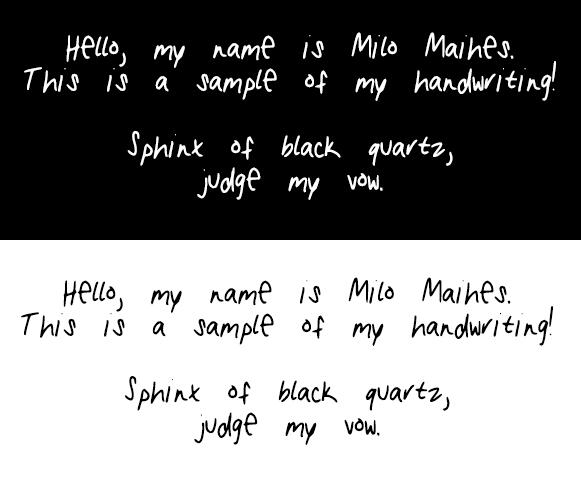 Hello, my name is Milo Maihes.
This is a sample of my handwriting!
Sphinx of black quartz,
judge my vow.
Hello, my name is Milo Maihes.
This is a sample of my handwriting!
Sphinx of black quartz,
judge my vow.